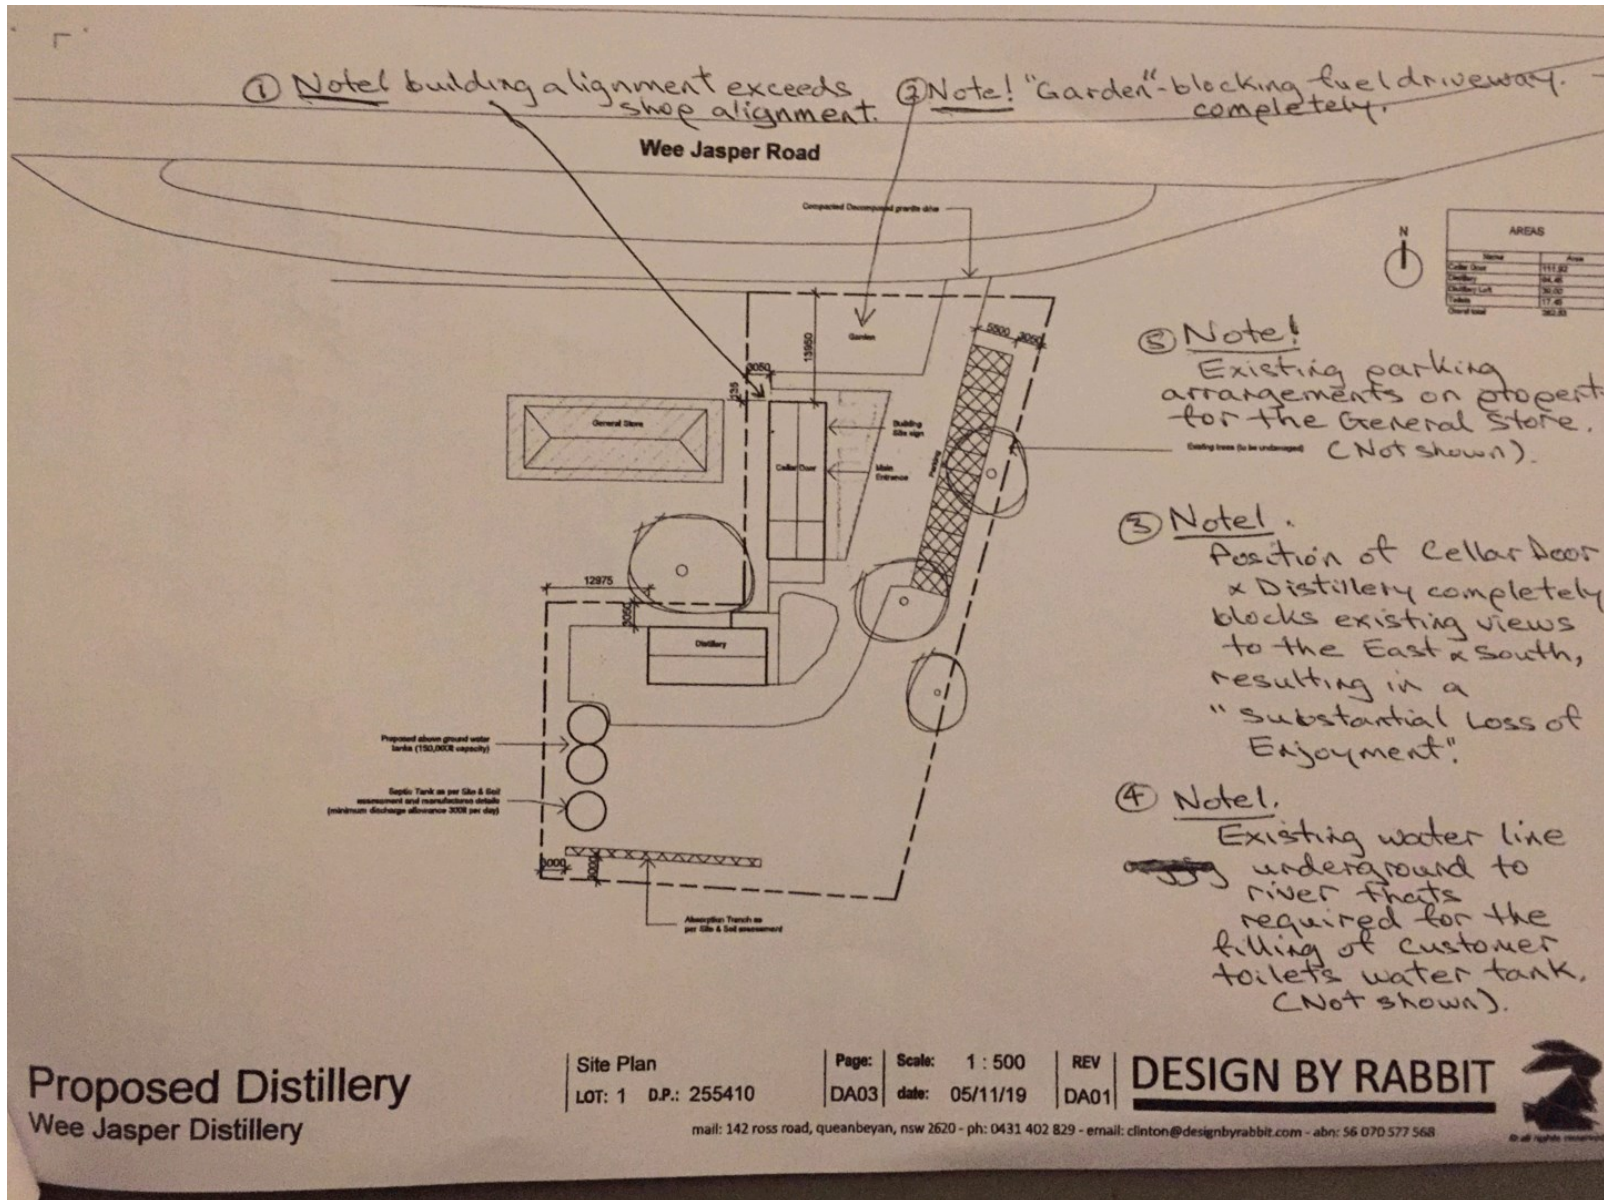 ① Note! building alignment exceeds
shop alignment.
② Note! "Garden"-blocking fuel driveway.
completely.
Wee Jasper Road
Compacted Decomposed granite drive
N
AREAS
Name Area
Cellar Door 111.92
Distillery
Distillery Loft
Toilets 17.45
Grand total
5500
3050
Garden
13950
3050
135
General Store
Building
Site sign
Cellar Door
Main
Entrance
Parking
⑤ Note!
Existing parking
arrangements on propert
for the General Store.
(Not shown).
Existing trees (to be undamaged)
③ Note!.
Position of Cellar Door
& Distillery completely
blocks existing views
to the East & South,
resulting in a
"Substantial Loss of
Enjoyment".
12975
3050
Distillery
Proposed above ground water
tanks (150,000lt capacity)
Septic Tank as per Site & Soil
assessment and manufactures details
(minimum discharge allowance 300lt per day)
④ Note!.
Existing water line
underground to
river thats
required for the
filling of customer
toilets water tank.
(Not shown).
3000
3000
Absorption Trench as
per Site & Soil assessment
Proposed Distillery
Wee Jasper Distillery
Site Plan
LOT: 1 D.P.: 255410
Page:
DA03
Scale: 1 : 500
date: 05/11/19
REV
DA01
DESIGN BY RABBIT
mail: 142 ross road, queanbeyan, nsw 2620 - ph: 0431 402 829 - email: clinton@designbyrabbit.com - abn: 56 070 577 568
© all rights reserved